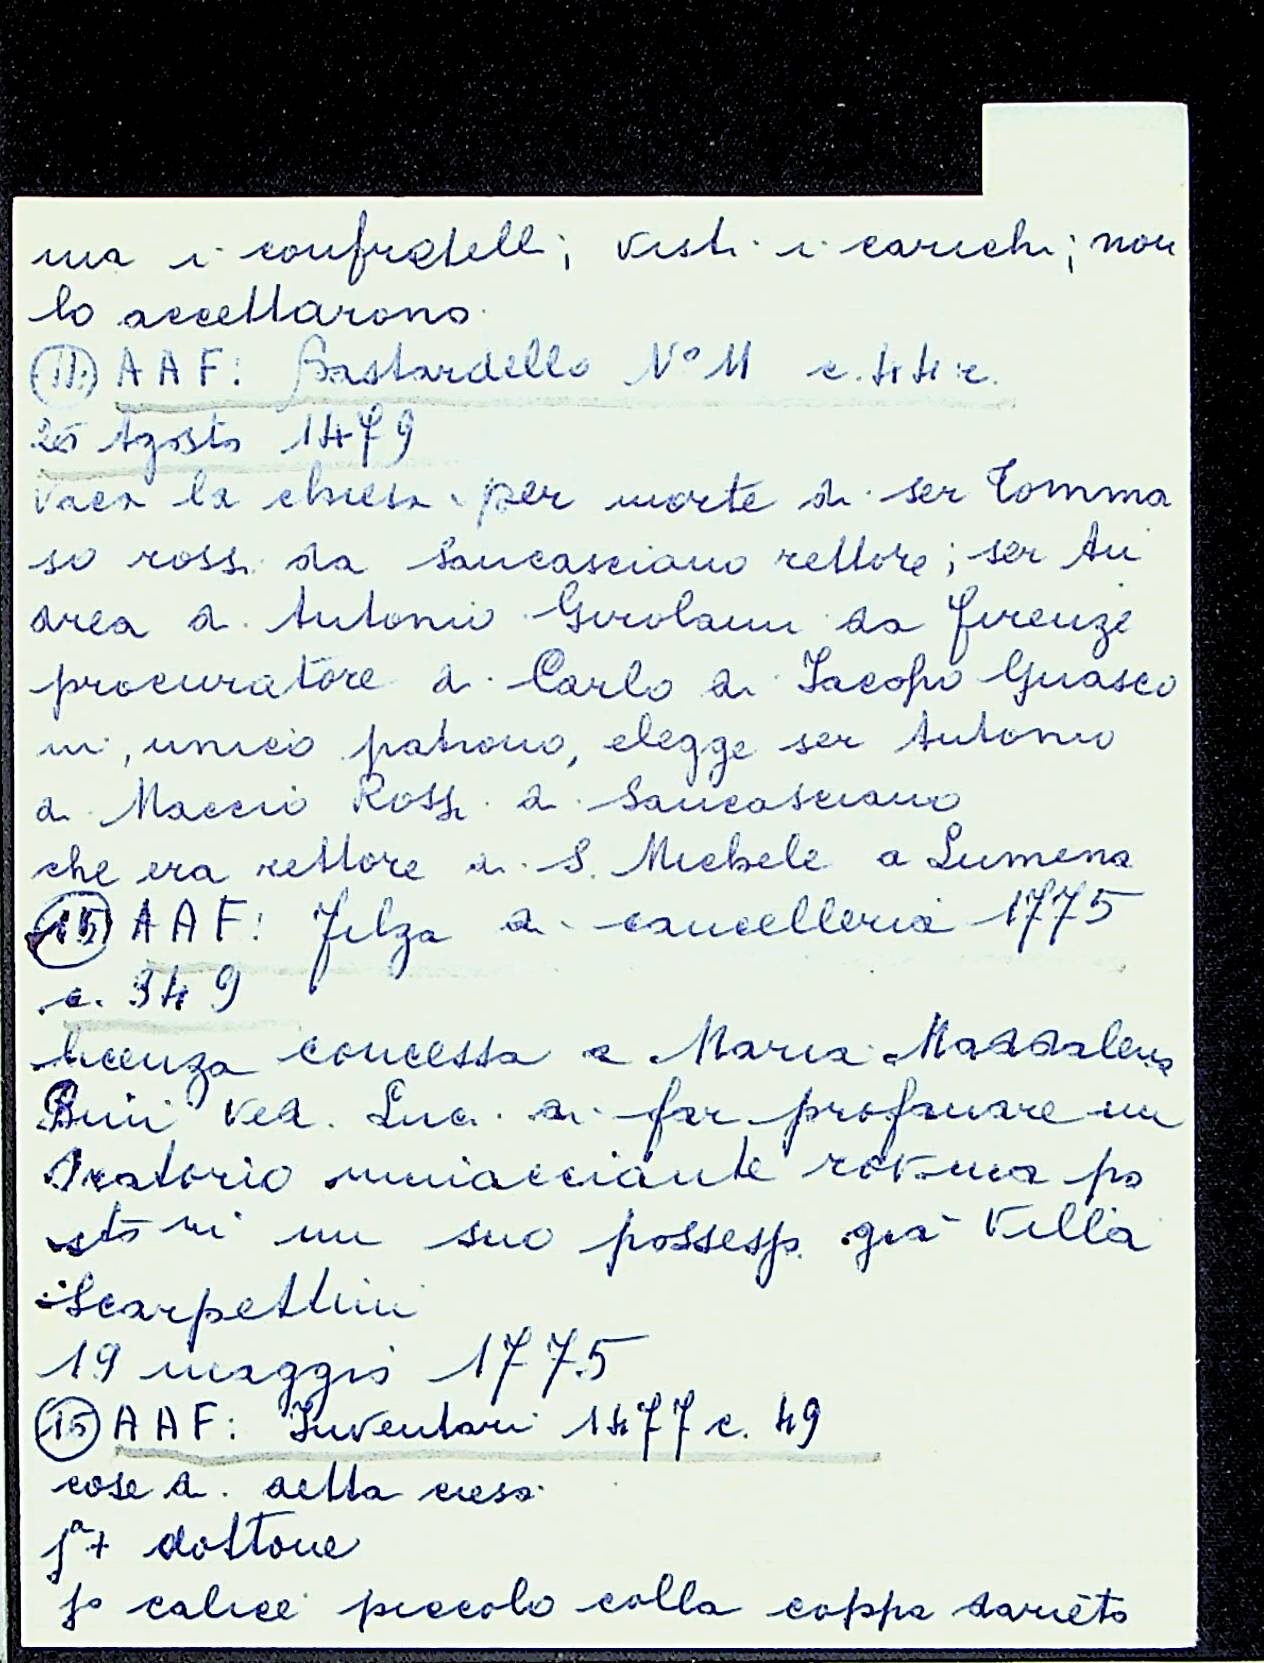 ma i confratelli; visti i carichi; non
lo accettarono.
(11.) A A F: Bastardello N° 11 c. 44 r.
25 Agosto 1479
vaca la chiesa per morte di ser Tomma
so rossi da Sancasciano rettore; ser An
drea di Antonio Girolami da firenze
procuratore di Carlo di Iacopo Guasco
ni, unico patrono, elegge ser Antonio
di Maccio Rossi di Sancasciano
che era rettore di S. Michele a Lumena
(15) A A F: Filza di cancelleria 1775
c. 349
licenza concessa a Maria Maddalena
Bini ved. Luci di far profanare un
Oratorio minacciante rovina po
sto in un suo possesso già Villa
Scarpettini
19 maggio 1775
(15) A A F: Inventari 1477 c. 49
cose di detta ciesa
1ª + dottone
1° calice piccolo colla coppa darieto